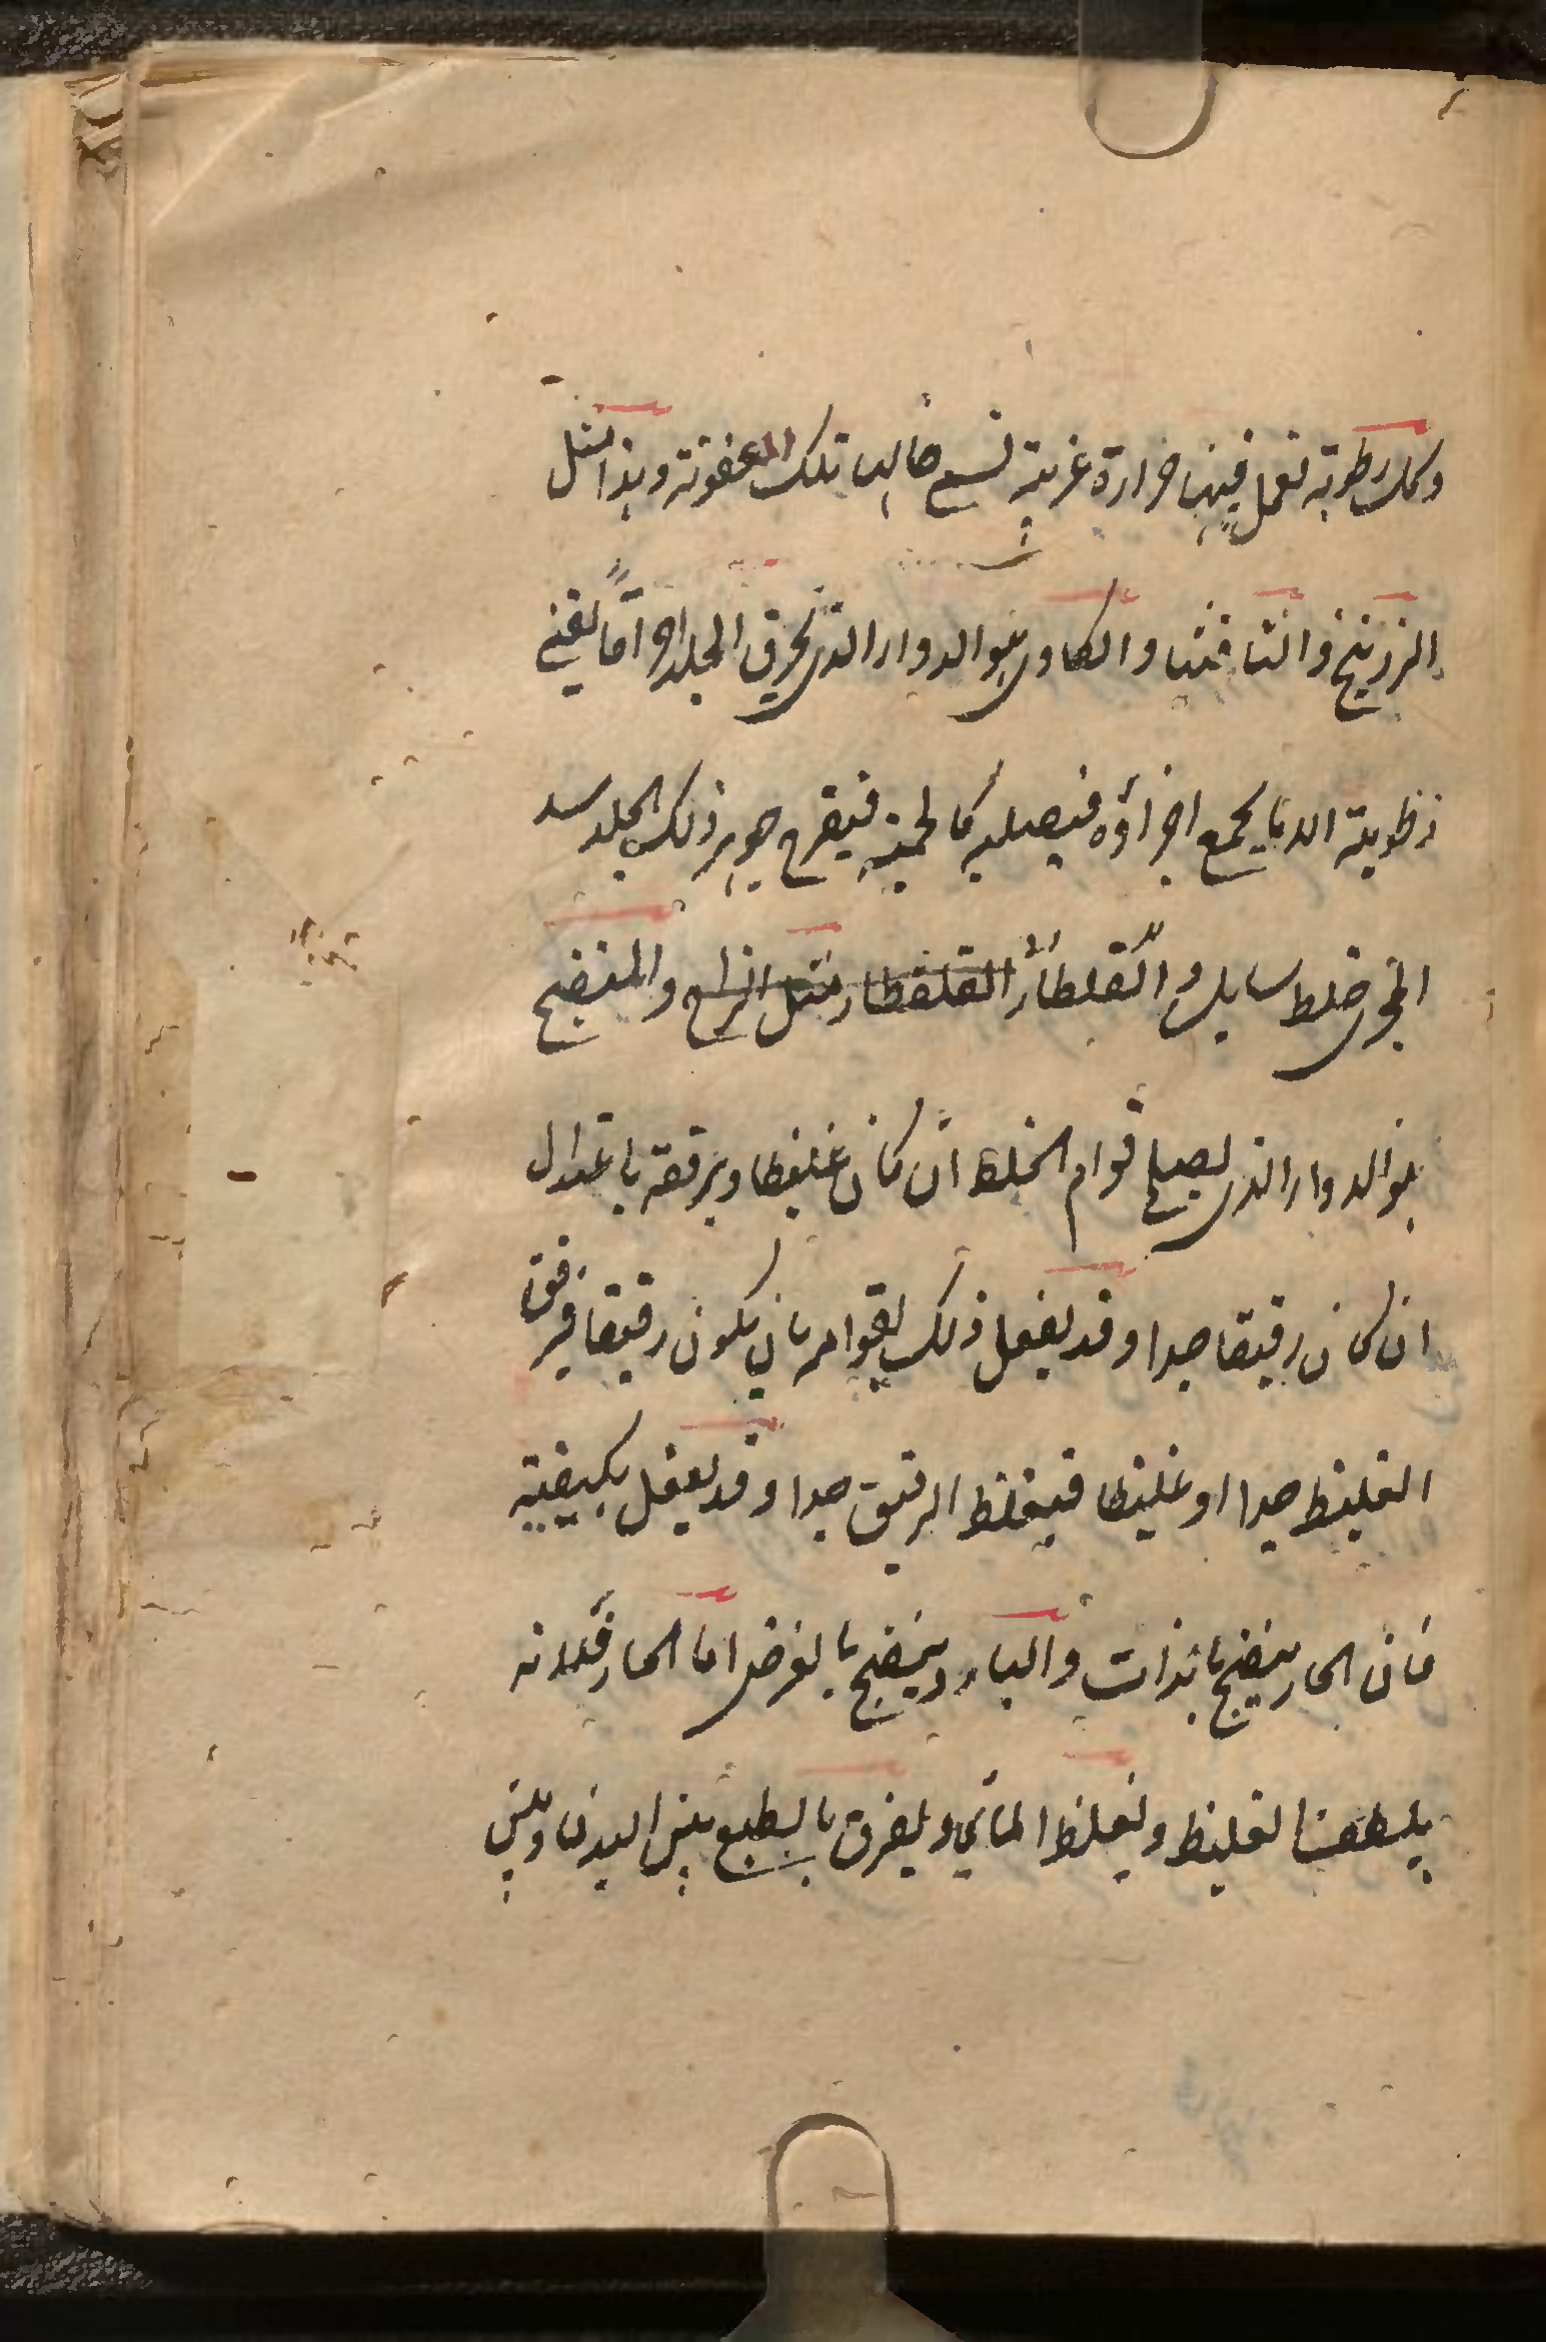 وكل رطوبة تعمل فيها حرارة غريبة تسمى حالها تلك العفونة وهذا مثل
الزرنيخ والثافثيا والكاوي هو الدواء الذي يحرق الجلد احراقا يفني
رطوبة الدنا يجمع اجزاؤه فيصلبه كالحمة فيقرح جوهر ذلك الجلد سد
المجرى خلط سايل والقلطار القلقطار مثل الزاج والمنضج
هو الدواء الذي يصلح قوام الخلط ان كان غليظا ويرققه باعتدال
ان كان رقيقا جدا وقد يفعل ذلك لقوامه بان يكون رقيقا فيرقق
الغليظ جدا او غليظا فيغلظ الرقيق جدا وقد يفعل بكيفيته
فان الحار ينضج بالذات والبارد ينضج بالعرض اما الحار فلانه
يلطف الغليظ ويغلظ المائي ويفرق بالطبع بين البدن وبين